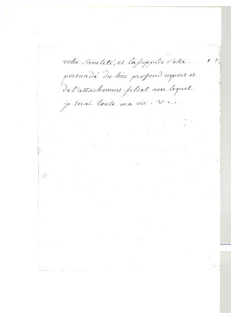 votre Sainteté, et la supplie d'être
persuadé du très profond respect et
de l'attachement filial avec lequel
je serai toute ma vie. &c.